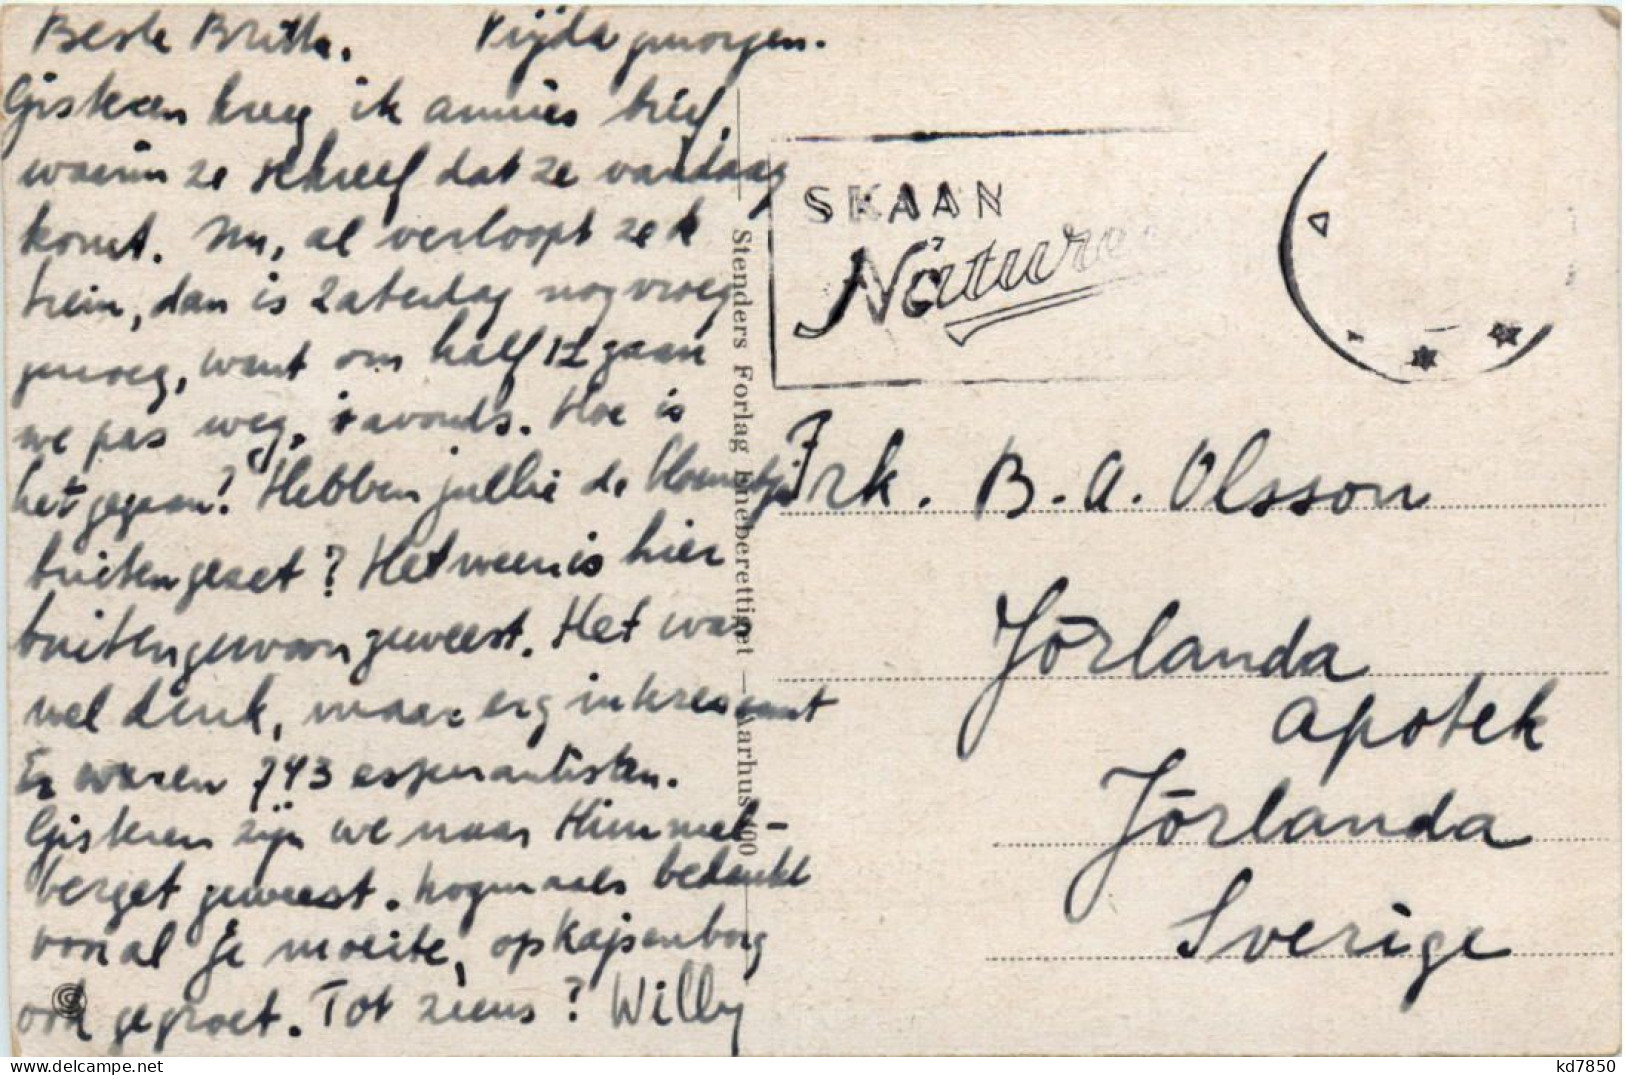 Beste Britta. Vrijdagmorgen.
Gisteren kreeg ik annies brief,
waarin ze schreef dat ze vandaag
komt. Nu, al verloopt ze de
trein, dan is Zaterdag nog vroeg
genoeg, want om half 12 gaan
we pas weg, 's avonds. Hoe is
het gegaan? Hebben jullie de bloemetjes
buitengezet? Het weer is hier
buitengewoon geweest. Het was
wel druk, maar erg interessant
Er waren 743 esperantisten.
Gisteren zijn we naar Himmel-
berget geweest. Nogmaals bedankt
voor al je moeite, op Kajsenborg
ook gegroet. Tot ziens? Willy
Stenders Forlag Eneberettiget — Aarhus 300
SKAAN
Natur
Frk. B. A. Olsson
Jörlanda
apotek
Jörlanda
Sverige
kd7850